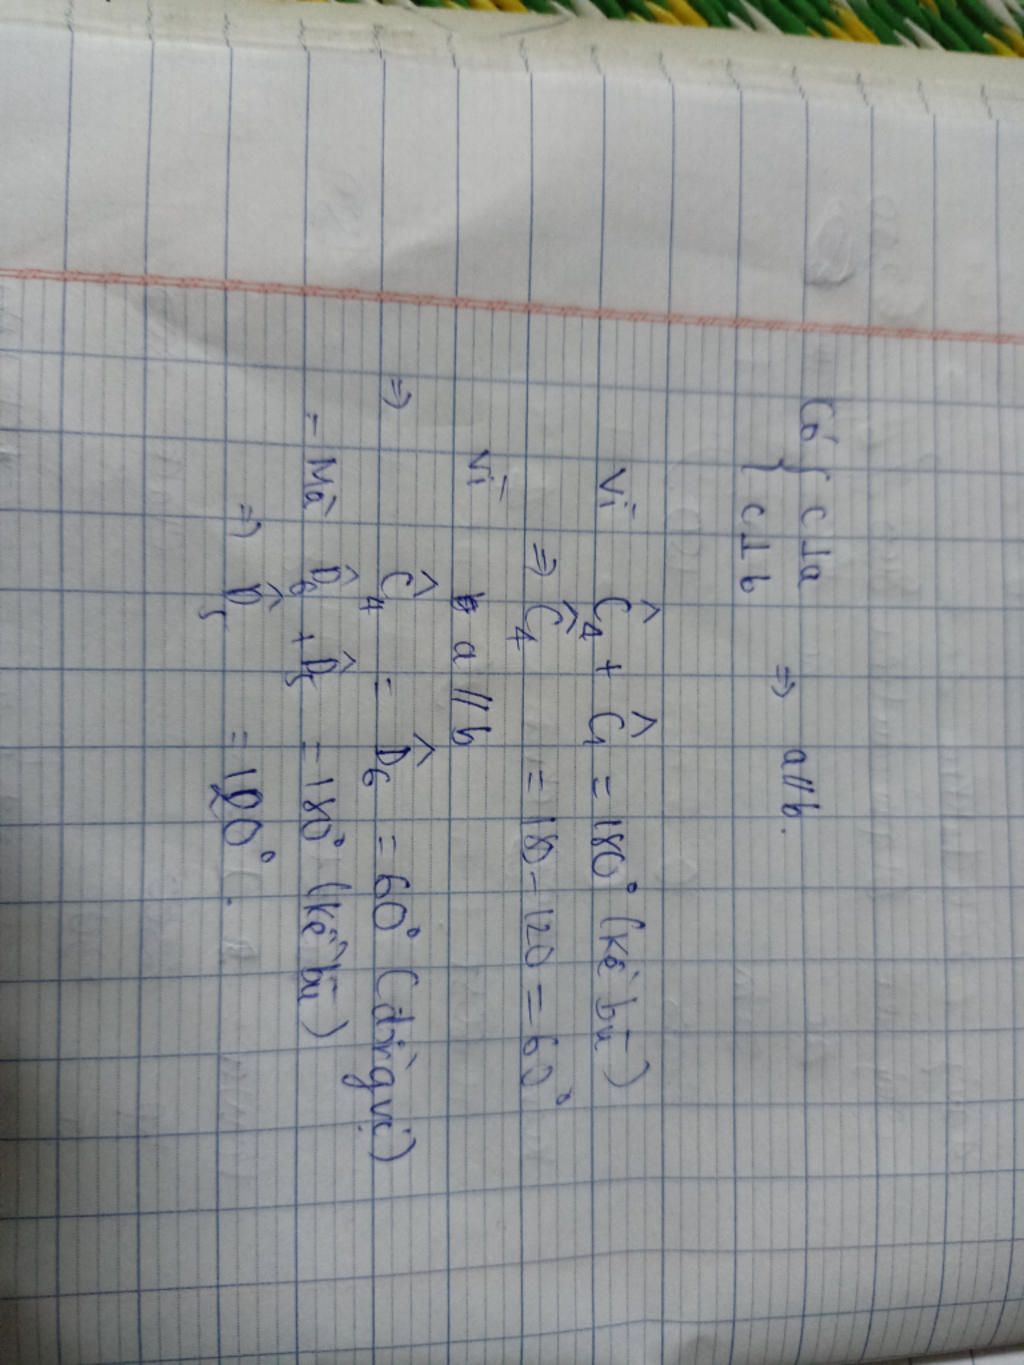 Có { c⊥a
{ c⊥b ⇒ a//b.
Vì Ĉ₄ + Ĉ₁ = 180° (kề bù)
⇒ Ĉ₄ = 180 - 120 = 60°
Vì a // b
⇒ Ĉ₄ = D̂₆ = 60° (đồng vị)
- Mà D̂₆ + D̂₅ = 180° (kề bù)
⇒ D̂₅ = 120°.